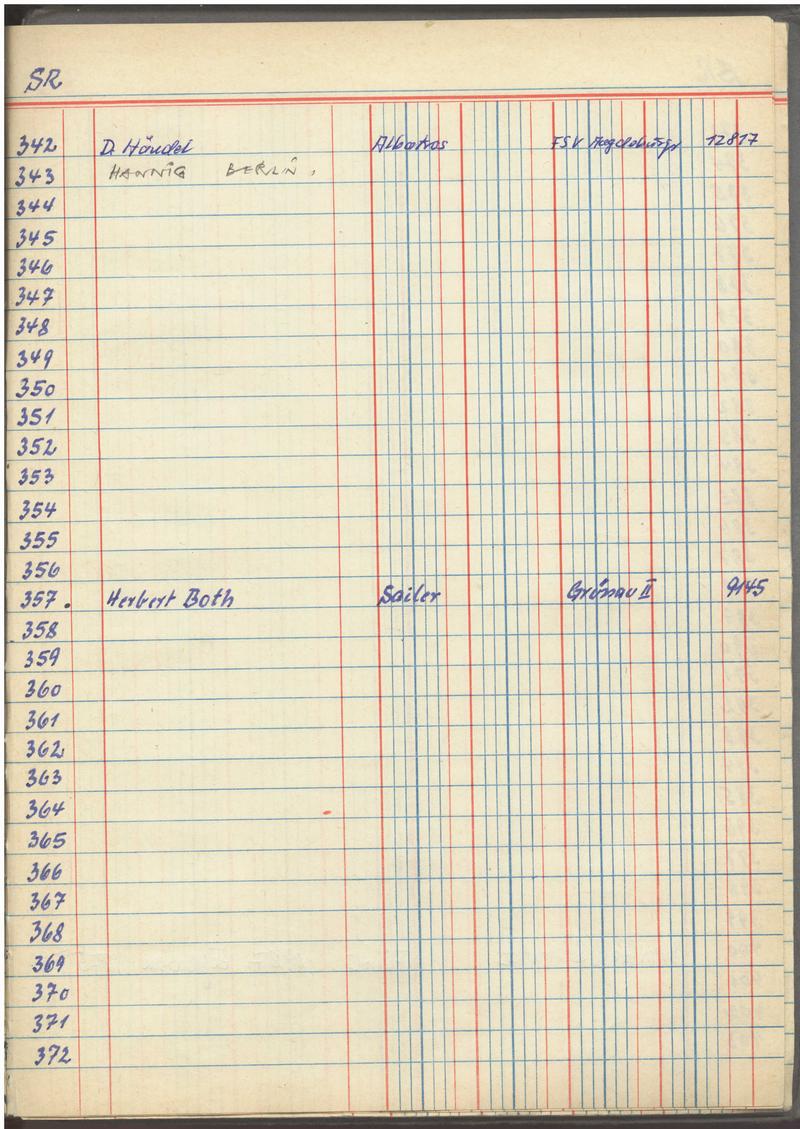 SR
342 D. Händel Albatros FSV Magdeburg 12817
343 HANNIG BERLIN.
344
345
346
347
348
349
350
351
352
353
354
355
356
357. Herbert Both Sailer Grünau II 9145
358
359
360
361
362
363
364
365
366
367
368
369
370
371
372